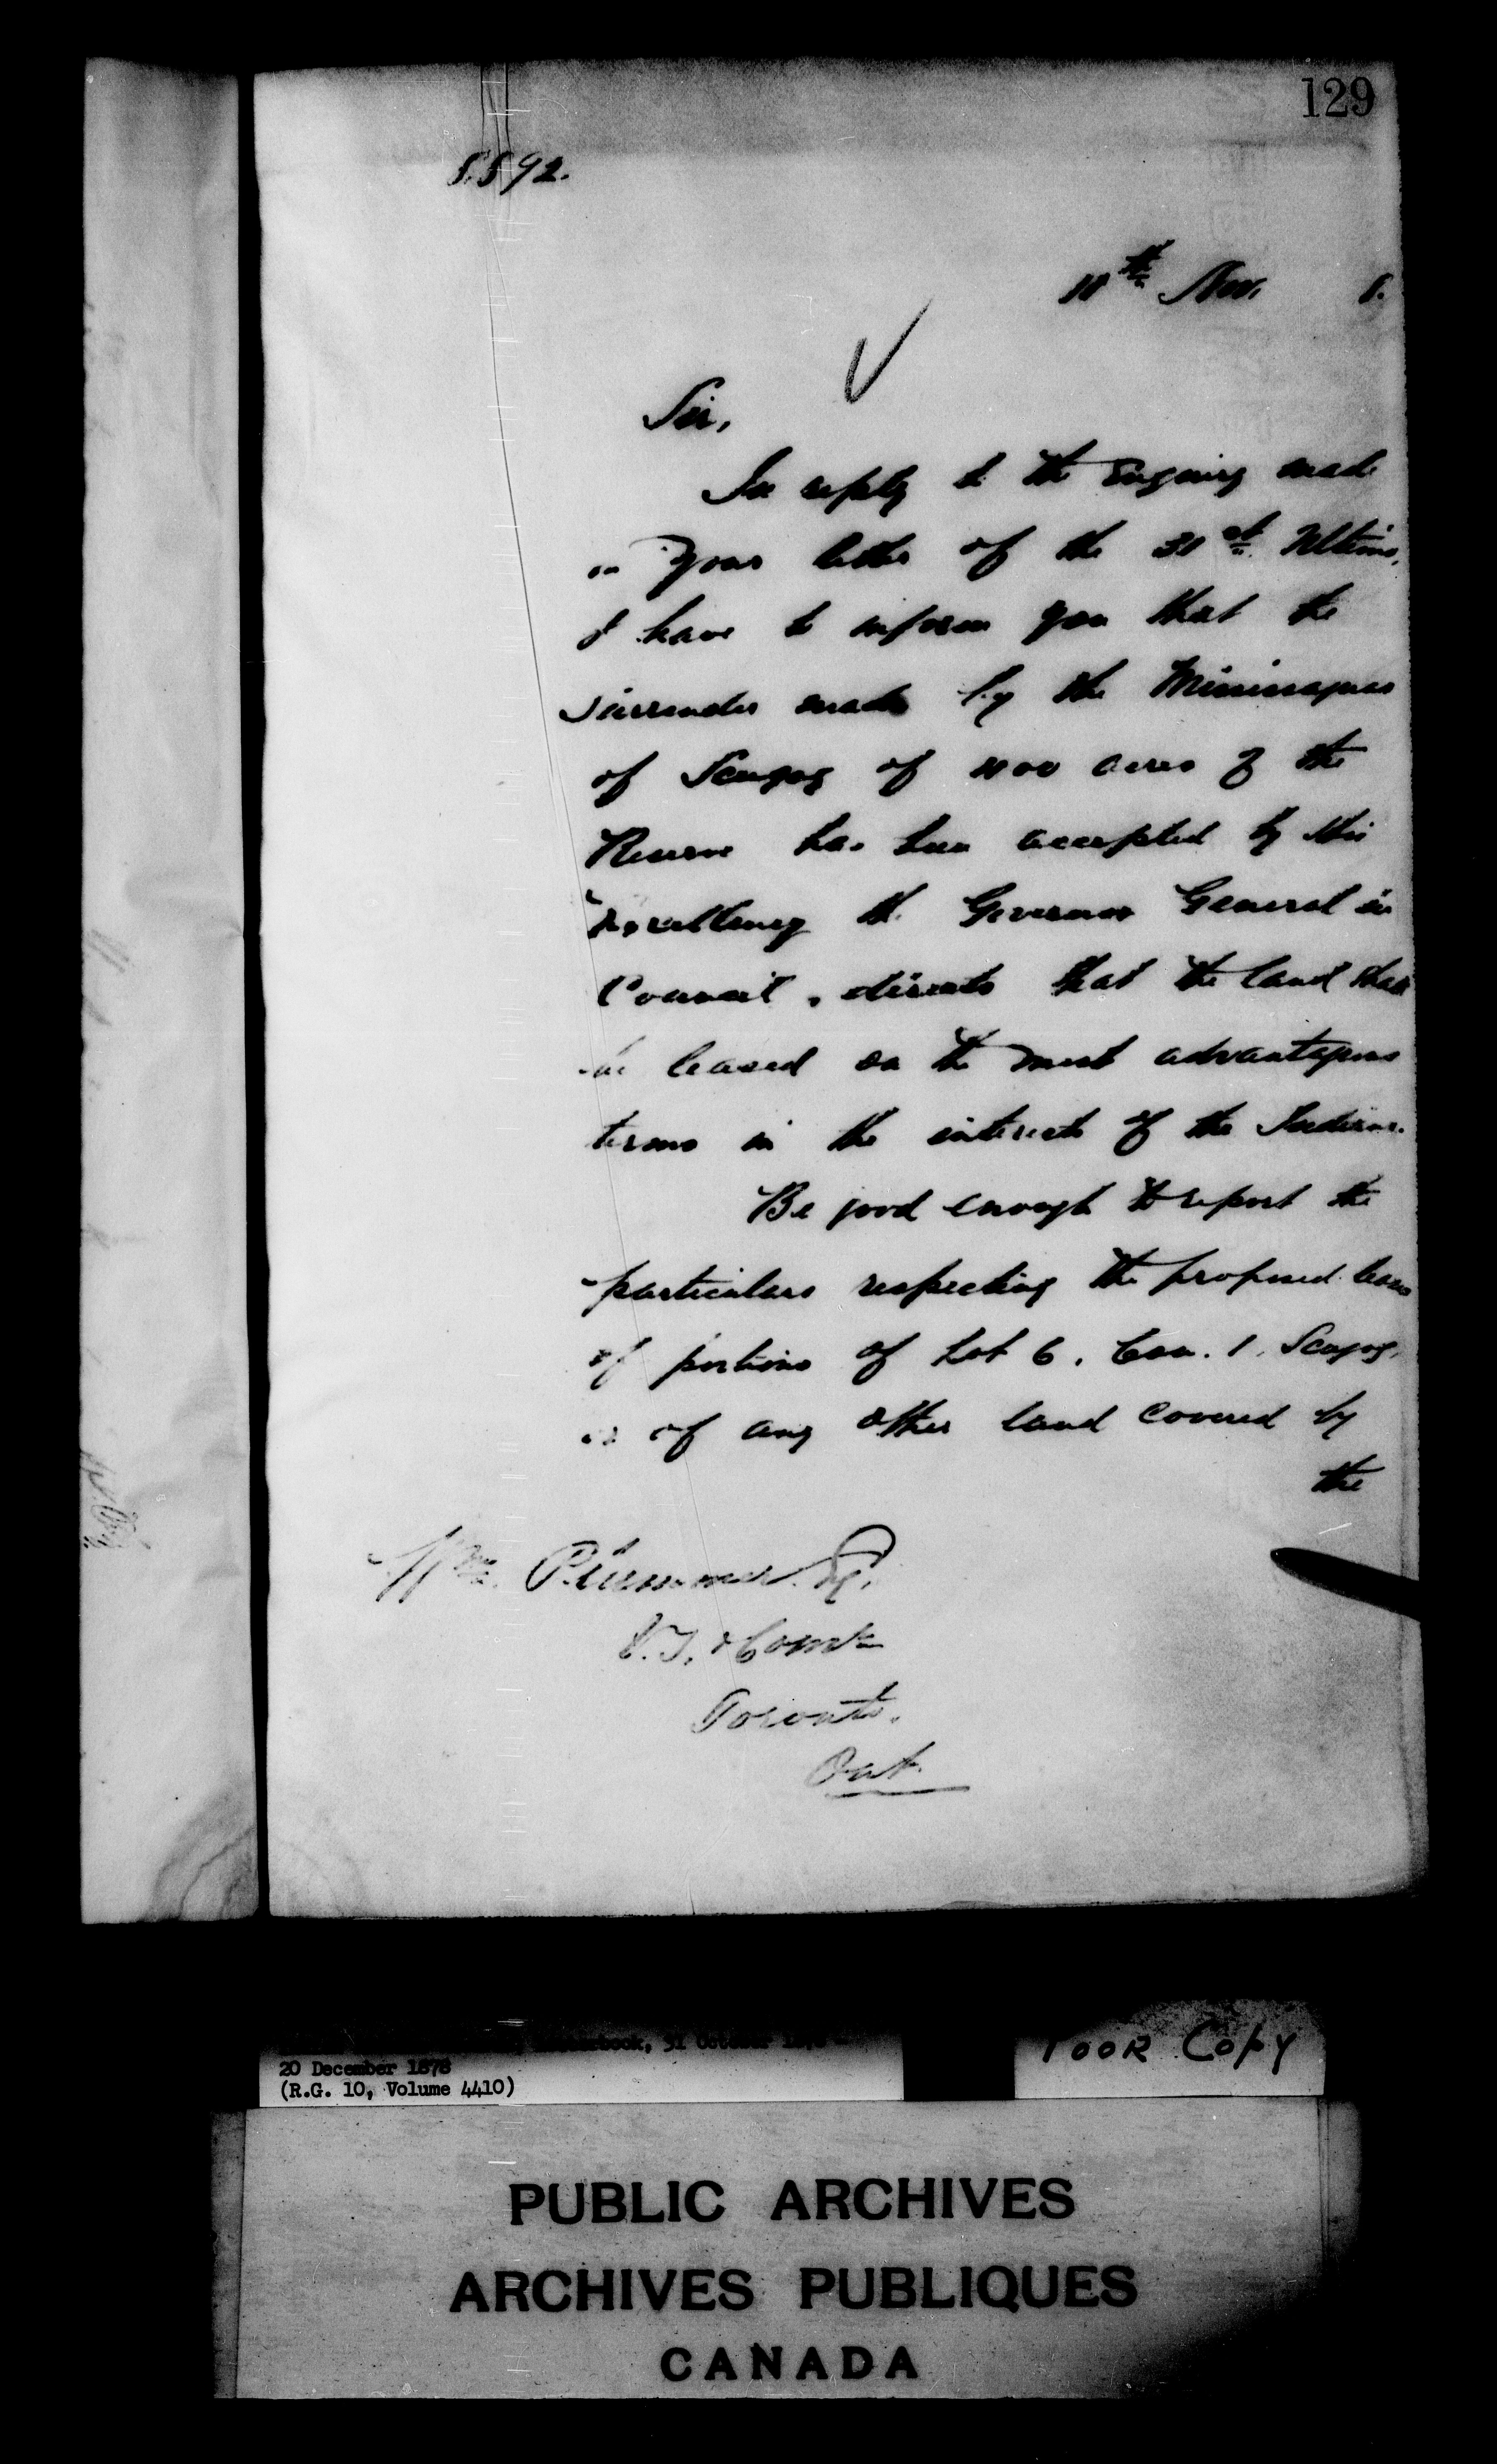 129
8892.
11th Nov. 8.
Sir,
In reply to the Enquiry made
in your letter of the 31st Ultimo,
I have to inform you that the
surrender made by the Mississaguas
of Scugog of 400 acres of the
Reserve has been accepted by His
Excellency the Governor General in
Council, directs that the land shall
be leased on the most advantageous
terms in the interests of the Indians.
Be good enough to report the
particulars respecting the proposed lease
of portions of Lot 6, Con. 1, Scugog,
or of any other land covered by
the
Wm. Plummer Esq.
V.S. & Comr
Toronto.
Ont.
Letterbook, 31 October
20 December 1878
(R.G. 10, Volume 4410)
POOR Copy
PUBLIC ARCHIVES
ARCHIVES PUBLIQUES
CANADA